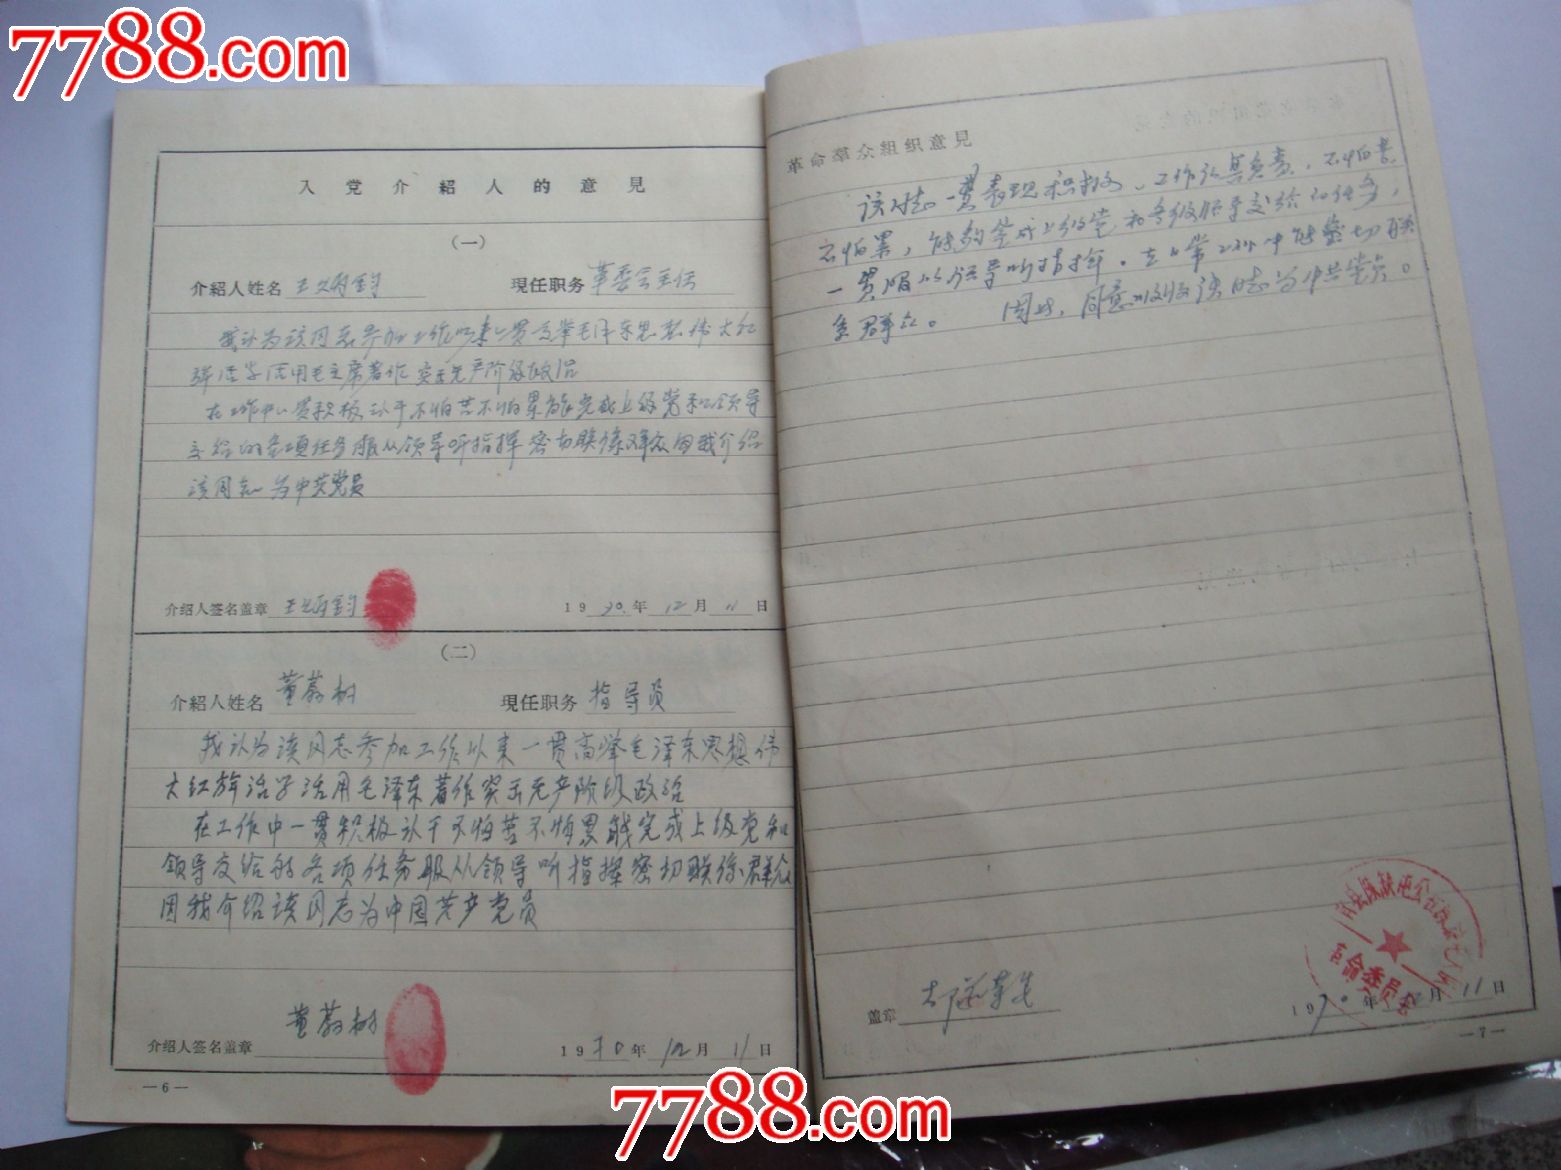 7788.com
入党介紹人的意見
（一）
介紹人姓名 現任职务 革委会主任
我认为该同志参加工作以来一贯高举毛泽东思想伟大红
活学活用毛主席著作 突击无产阶级政治
在工作中一贯积极认干不怕苦不怕累能完成上级党和领导
交给的各项任务服从领导听指挥密切联系群众因我介绍
该同志为中共党员
介紹人签名盖章 1970年12月11日
（二）
介紹人姓名 董荔树 現任职务 指导员
我认为该同志参加工作以来一贯高举毛泽东思想伟
大红旗活学活用毛泽东著作突击无产阶级政治
在工作中一贯积极认干不怕苦不怕累能完成上级党和
领导交给的各项任务服从领导听指挥密切联系群众
因我介绍该同志为中国共产党员
董荔树
介紹人签名盖章 1970年12月11日
—6—
革命羣众組织意見
该同志一贯表现积极、工作认真负责，不怕苦
不怕累，能够完成上级党和各级领导交给的任务，
一贯服从领导听指挥。在日常工作中能密切联
系群众。 因此，同意吸收该同志为中共党员。
革命委员会
盖章 1970年12月11日
—7—
7788.com